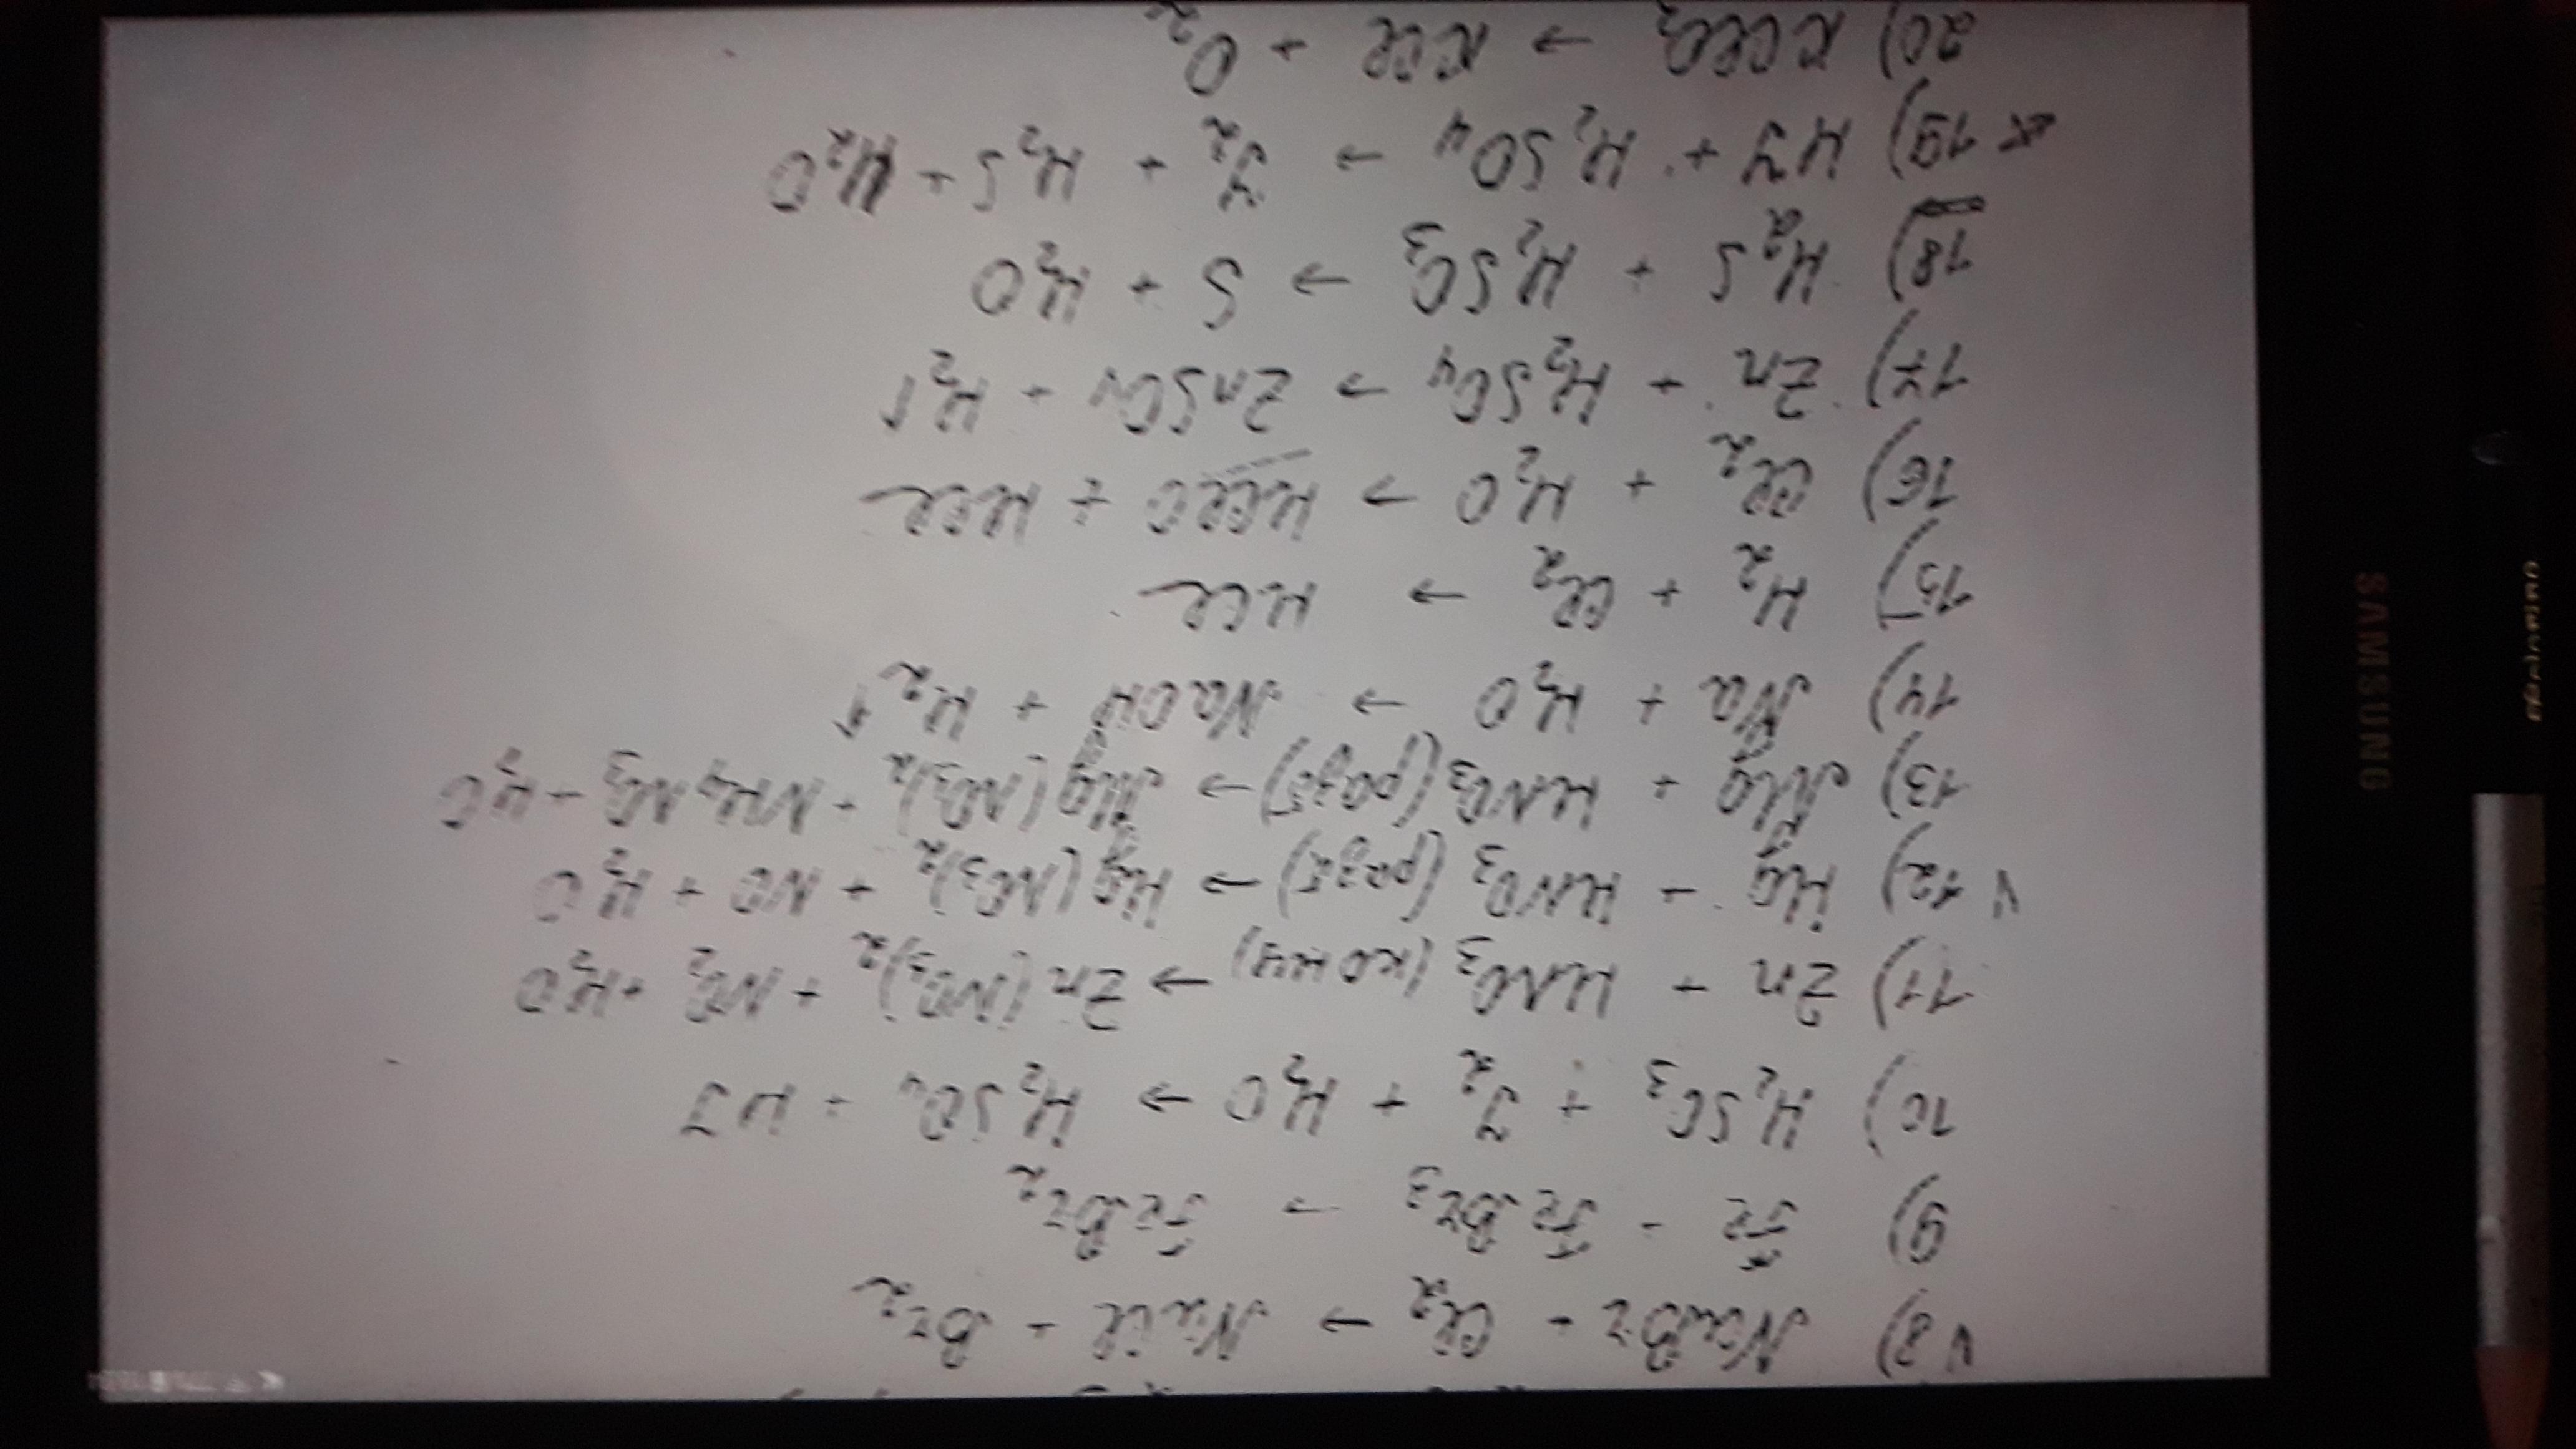 v 8) NaBr + Cl₂ → NaCl + Br₂
9) Fe + FeBr₃ → FeBr₂
10) H₂SO₃ + J₂ + H₂O → H₂SO₄ + HJ
11) Zn + HNO₃ (конц) → Zn(NO₃)₂ + NO₂ + H₂O
v 12) Hg + HNO₃ (разб) → Hg(NO₃)₂ + NO + H₂O
13) Mg + HNO₃ (разб) → Mg(NO₃)₂ + NH₄NO₃ + H₂O
14) Na + H₂O → NaOH + H₂↑
15) H₂ + Cl₂ → HCl
16) Cl₂ + H₂O → HClO + HCl
17) Zn + H₂SO₄ → ZnSO₄ + H₂↑
18) H₂S + H₂SO₃ → S + H₂O
19) HJ + H₂SO₄ → J₂ + H₂S + H₂O
20) KClO₃ → KCl + O₂
SAMSUNG